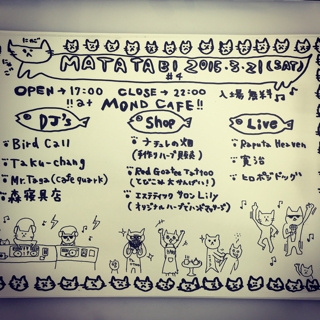 にゃご
MATATABI 2015.3.21(SAT)
#4
OPEN→17:00 CLOSE→22:00 入場無料♪
!!at MOND CAFE!!
DJ's
Bird Call
Taku-chang
Mr.Taga(Cafe quark)
森寝具店
Shop
ナチュレの畑
(手作りハーブ販売)
Red Goatee Tattoo
エステティックサロンLily
(オリジナルハーブでハンドマッサージ)
Live
Raputa Heaven
寛治
ヒロポジドッグ